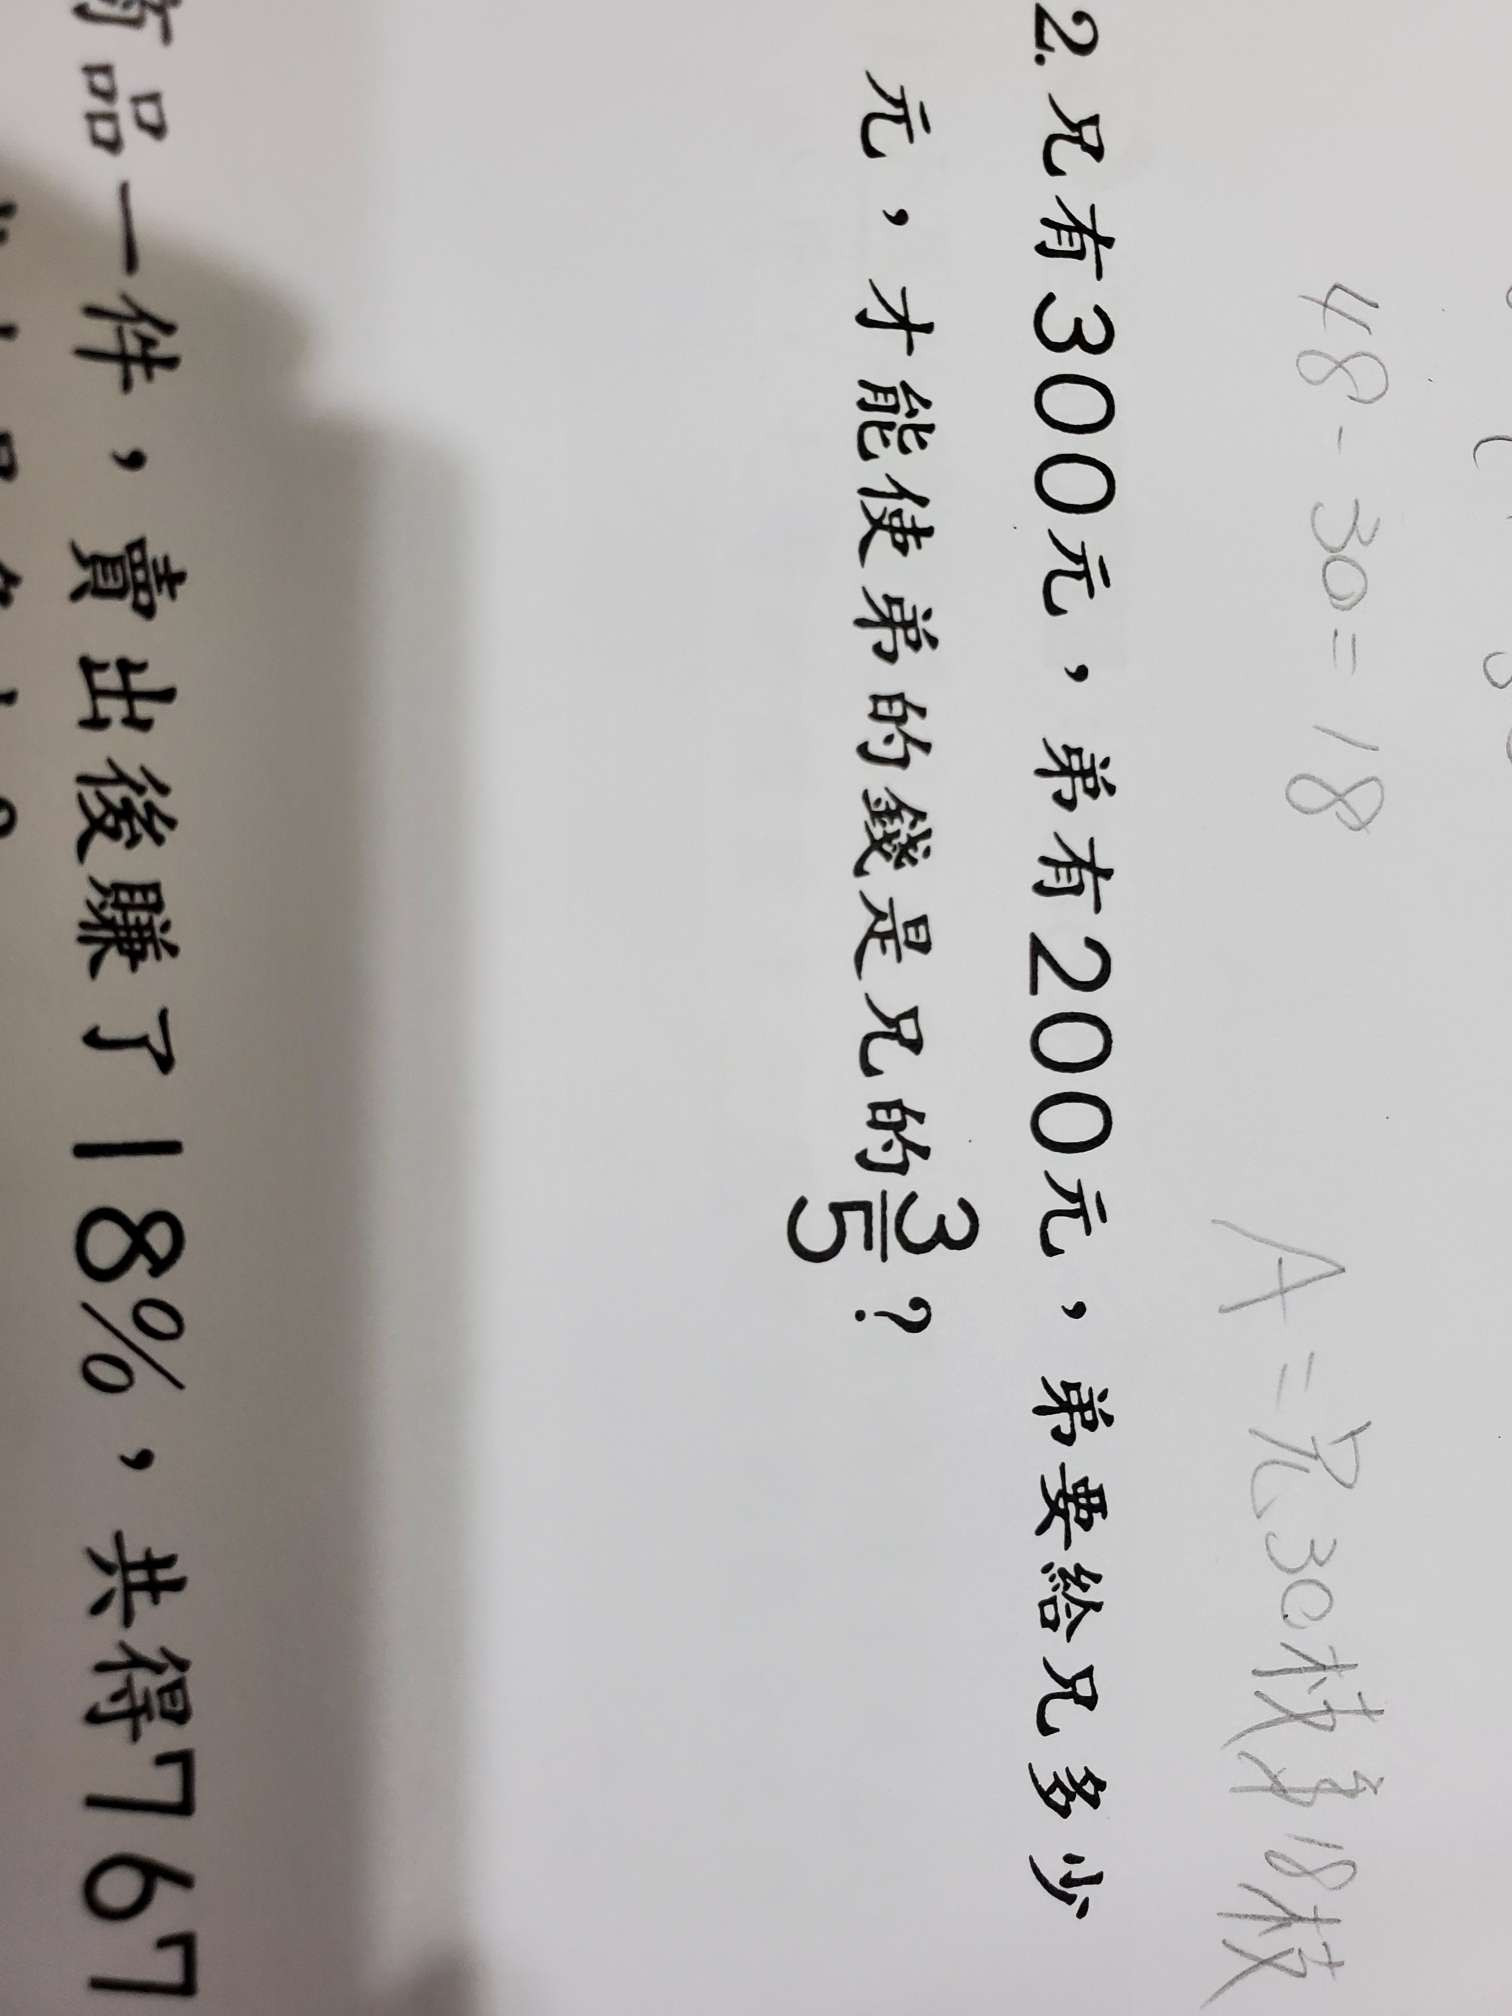 48-30=18 A=兄30枝弟18枝
2.兄有300元，弟有200元，弟要給兄多少
元，才能使弟的錢是兄的3/5？
商品一件，賣出後賺了18%，共得767